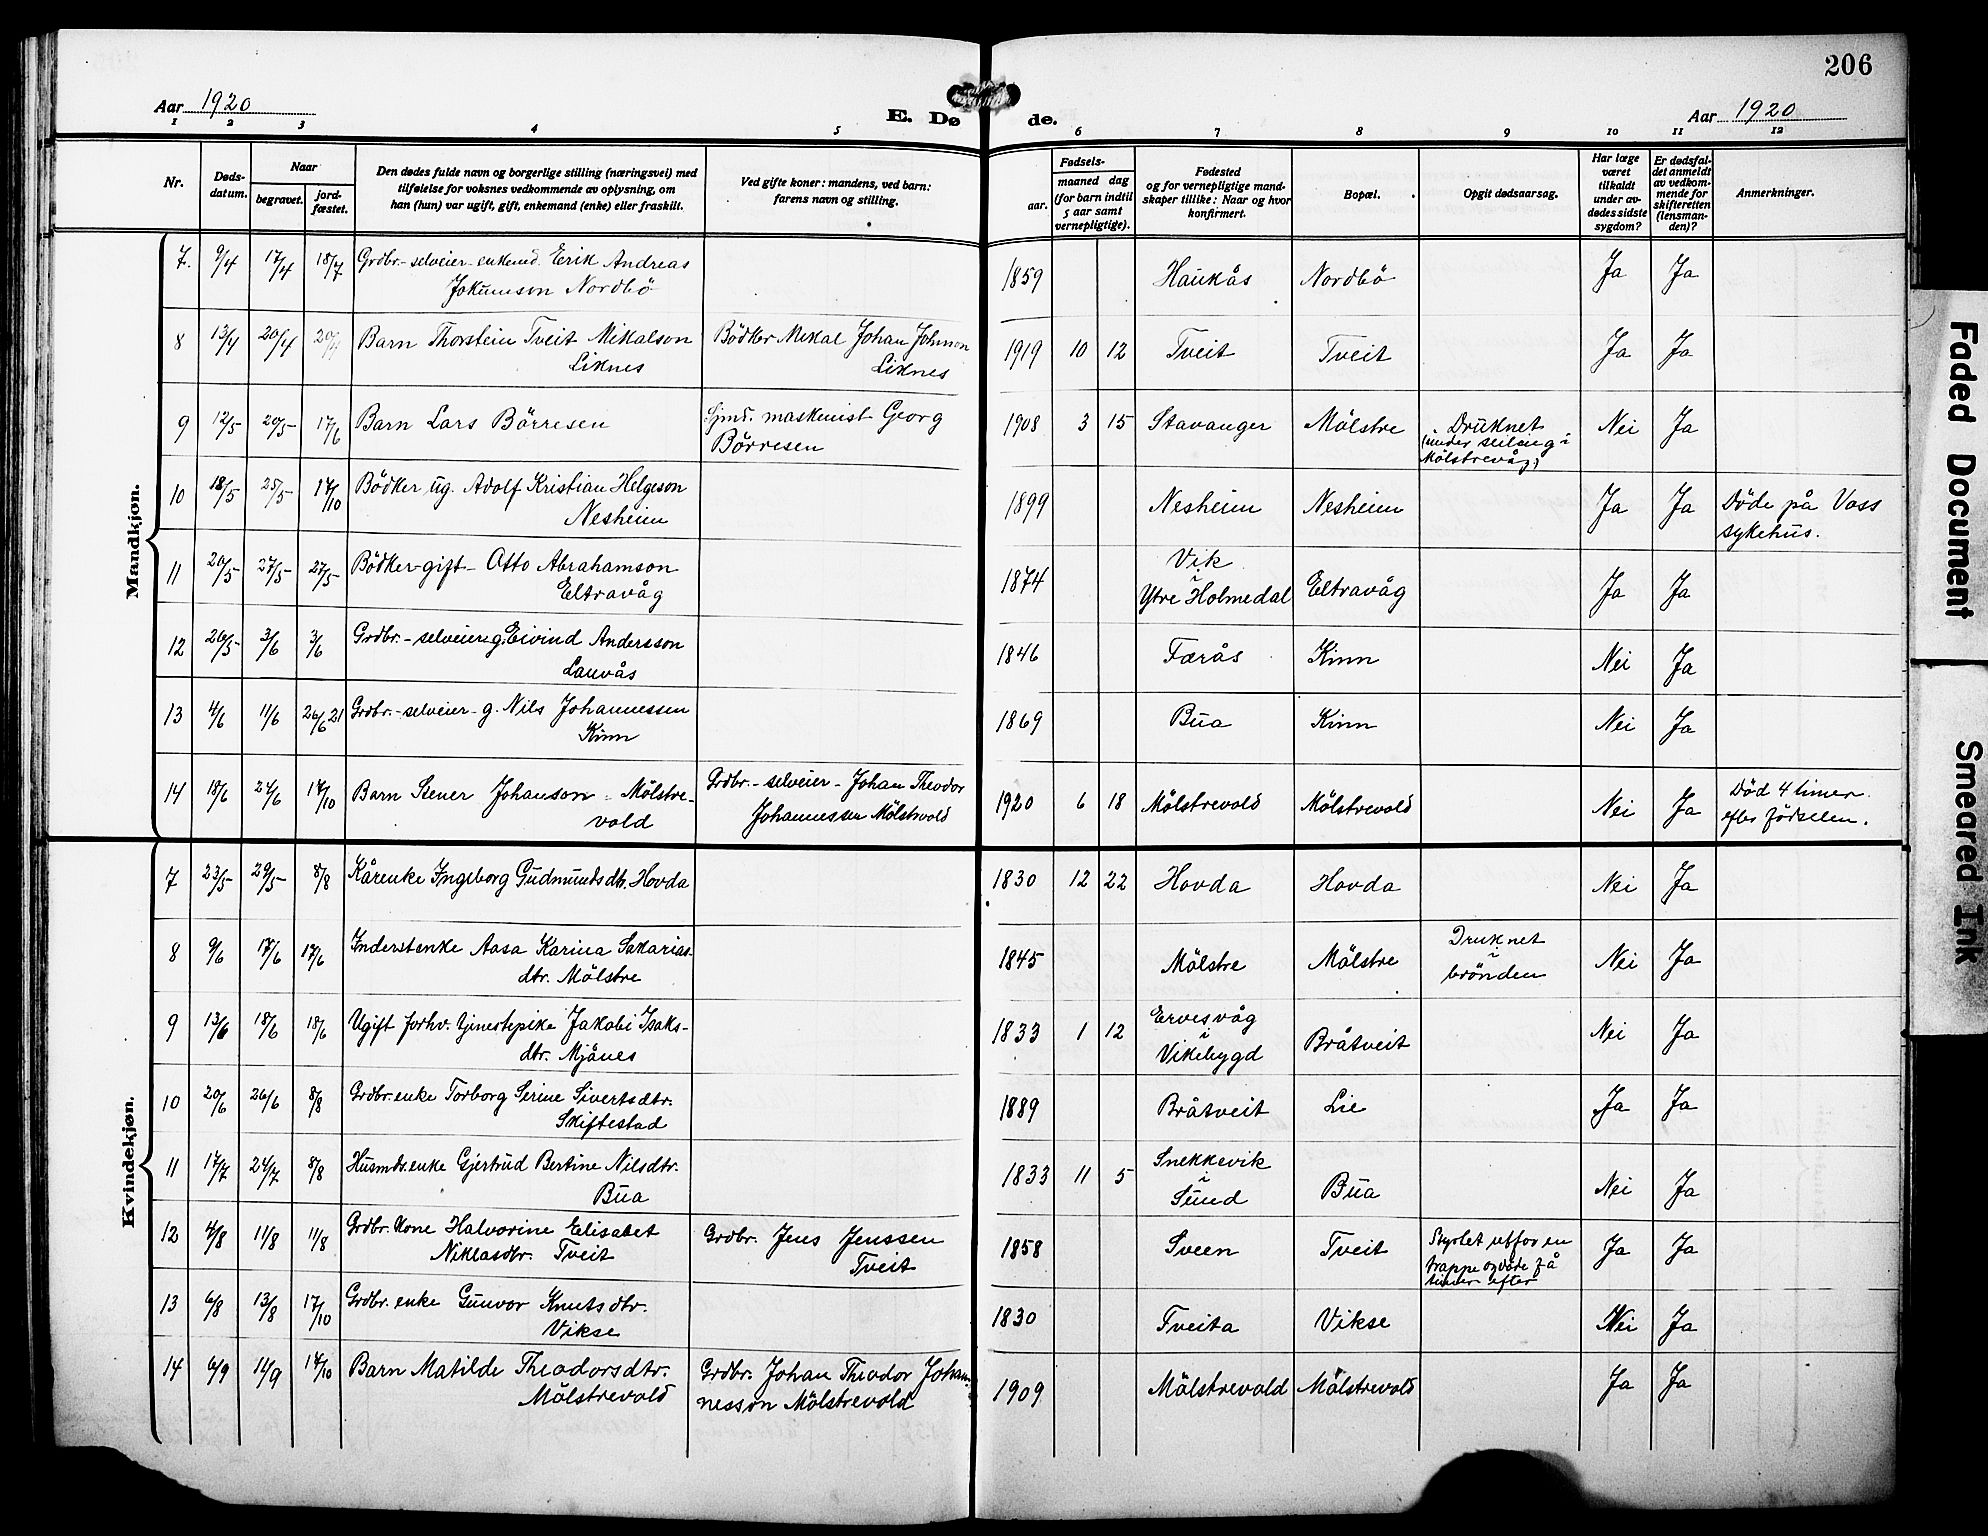 206
Aar 1920
E. Døde.
Aar 1920
1 2 3 4 5 6 7 8 9 10 11 12
Nr.
Dødsdatum.
Naar
begravet.
jordfæstet.
Den dødes fulde navn og borgerlige stilling (næringsvei) med
tilføielse for voksnes vedkommende av oplysning, om
han (hun) var ugift, gift, enkemand (enke) eller fraskilt.
Ved gifte koner: mandens, ved barn:
farens navn og stilling.
Fødsels-
aar.
maaned dag
(for barn indtil
5 aar samt
vernepligtige).
Fødested
og for vernepligtige mand-
skaper tillike: Naar og hvor
konfirmert.
Bopæl.
Opgit dødsaarsag.
Har læge
været
tilkaldt
under av-
dødes sidste
sygdom?
Er dødsfal-
det anmeldt
av vedkom-
mende for
skifteretten
(lensman-
den)?
Anmerkninger.
Mandkjøn.
7. 9/4 17/4 18/7 Grdbr.-selveier-enkemd. Erik Andreas
Jokumson Nordbö 1859 Haukås Nordbö Ja Ja
8 13/4 20/4 20/4 Barn Thorstein Tveit Mikalson
Liknes Bödker Mikal Johan Johnson
Liknes 1919 10 12 Tveit Tveit Ja Ja
9 12/5 20/5 17/6 Barn Lars Börresen Sjmd. maskinist Georg
Börresen 1908 3 15 Stavanger Mölstre Druknet
(under seiling i
Mölstrevåg) Nei Ja
10 18/5 25/5 17/10 Bödker ug. Adolf Kristian Helgeson
Nesheim 1899 Nesheim Nesheim Ja Ja Döde på Voss
sykehus.
11 20/5 27/5 27/5 Bödker-gift- Otto Abrahamson
Eltravåg 1874 Vik
i
Ytre Holmedal Eltravåg Ja Ja
12 26/5 3/6 3/6 Grdbr.-selveier g. Eivind Andersson
Lauvås 1846 Færås Kinn Nei Ja
13 4/6 11/6 26/6 21 Grdbr.-selveier-g. Nils Johannessen
Kinn 1869 Bua Kinn Nei Ja
14 18/6 24/6 17/10 Barn Stener Johanson Mölstre-
vold Grdbr.-selveier-Johan Theodor
Johannessen Mölstrvold 1920 6 18 Mölstrevold Mölstrevold Nei Ja Död 4 timer
efter födselen.
Kvindekjøn.
7 23/5 29/5 8/8 Kårenke Ingeborg Gudmundsdtr. Hovda 1830 12 22 Hovda Hovda Nei Ja
8 9/6 17/6 17/6 Inderstenke Aasa Karina Sakarias-
dtr. Mölstre 1845 Mölstre Mölstre Druknet
i
brönden Nei Ja
9 13/6 18/6 18/6 Ugift forhv. tjenestepike Jakobi Isaks-
dtr. Mjånes 1833 1 12 Ervesvåg
i
Vikebygd Bråtveit Nei Ja
10 20/6 26/6 8/8 Grdbr.enke Torborg Serine Sivertsdtr.
Skiftestad 1889 Bråtveit Lie Ja Ja
11 17/7 24/7 8/8 Husmds.enke Gjertrud Bertine Nilsdtr.
Bua 1833 11 5 Snekkevik
i
Sund Bua Nei Ja
12 4/8 11/8 11/8 Grdbr. kone Halvorine Elisabet
Niklasdtr. Tveit Grdbr. Jens Jenssen
Tveit 1858 Sveen Tveit Styrtet utfor en
trappe og döde få
timer efter Ja Ja
13 6/8 13/8 17/10 Grdbr. enke Gunvor Knutsdtr.
Vikse 1830 Tveita Vikse Nei Ja
14 6/9 11/9 17/10 Barn Matilde Theodorsdtr.
Mölstrevold Grdbr. Johan Theodor Johan-
nesson Mölstrevold 1909 Mölstrevold Mölstrevold Ja Ja
Faded Document
Smeared Ink